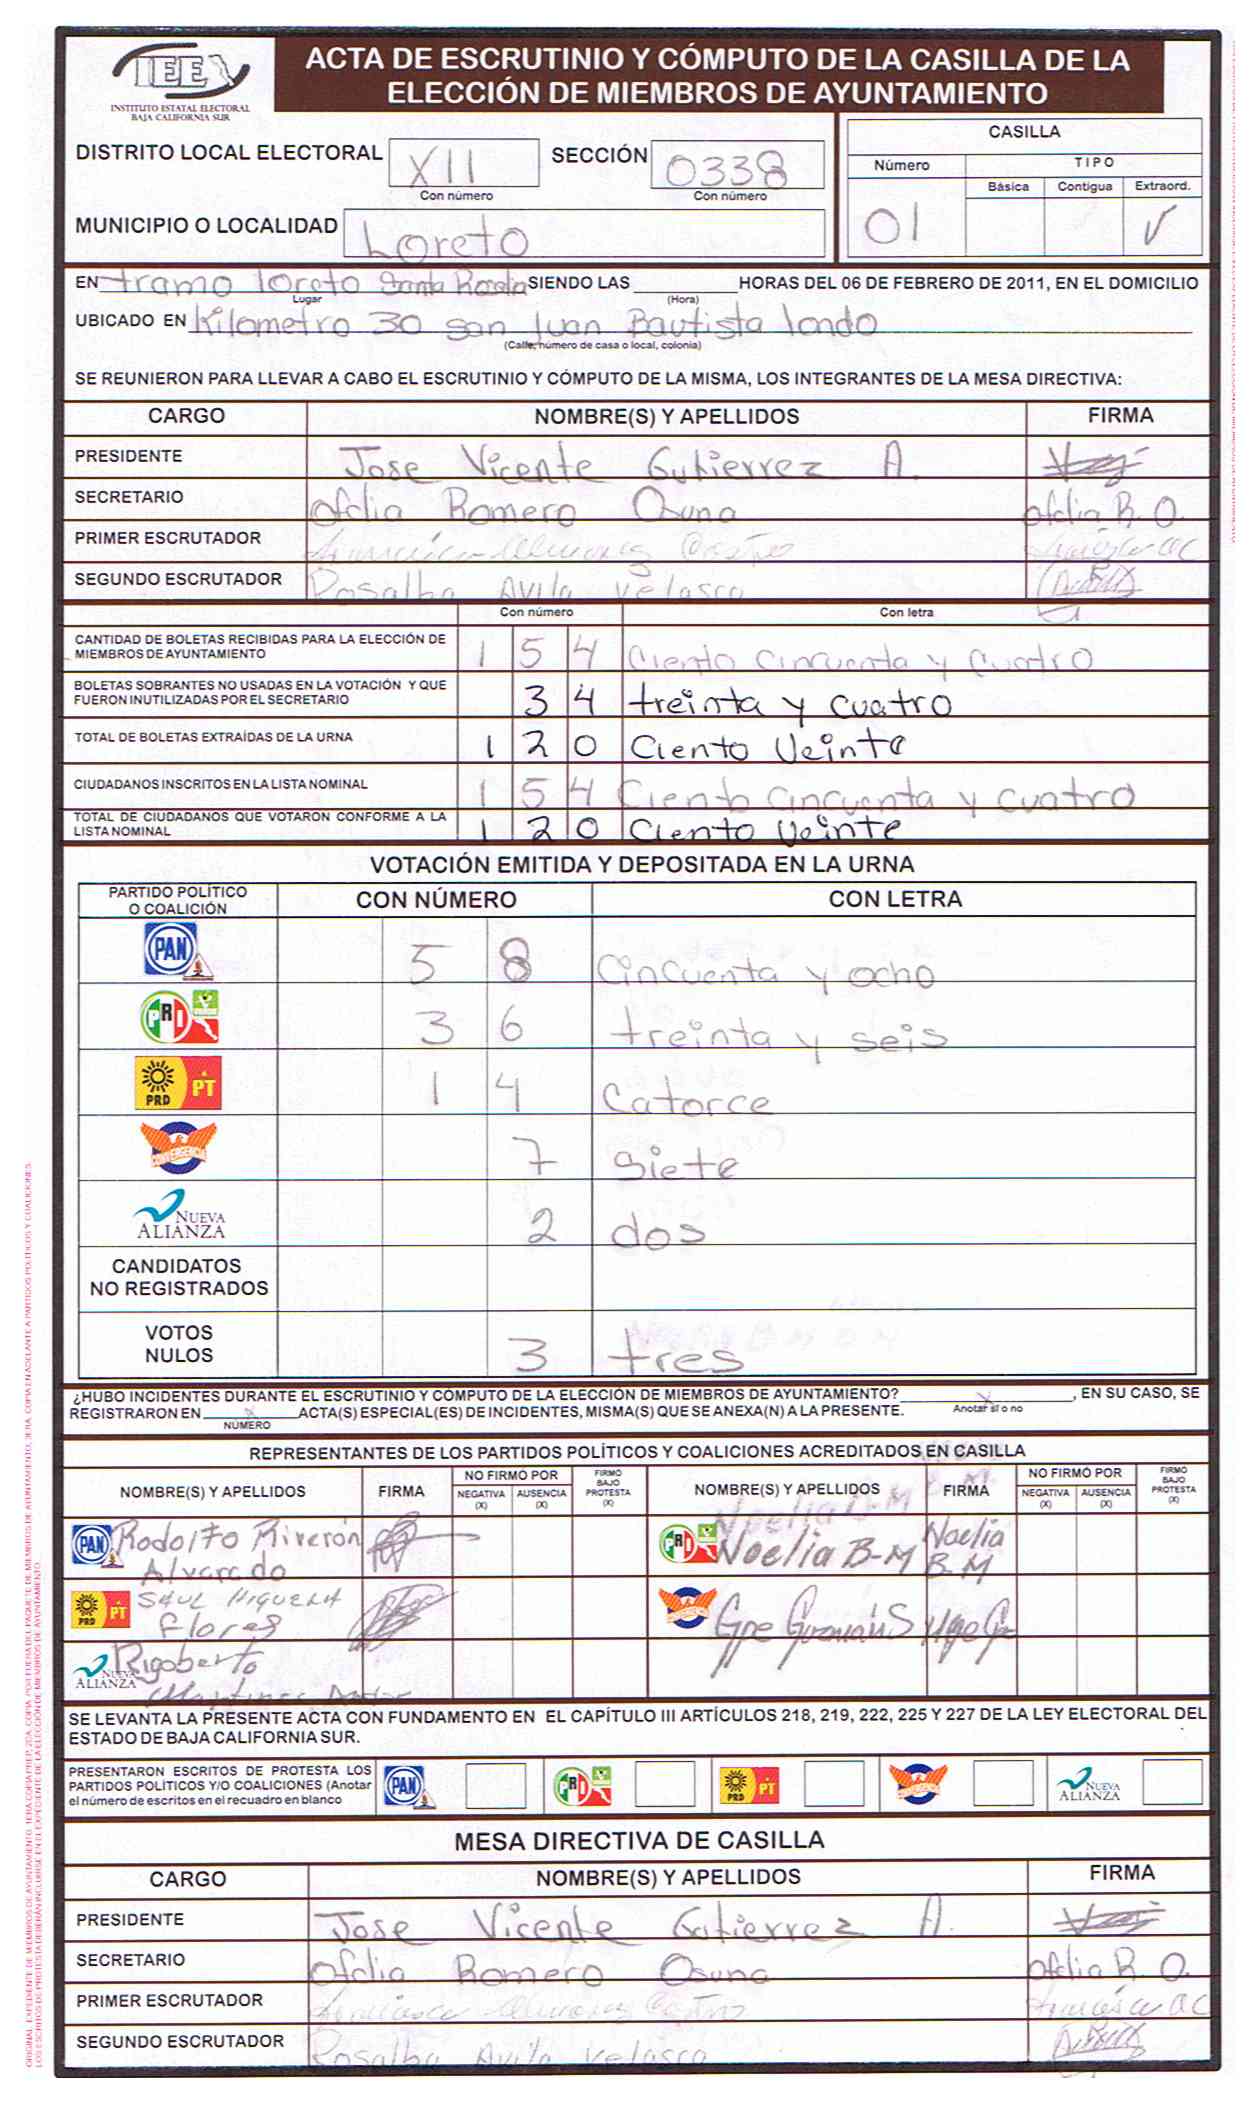 ACTA DE ESCRUTINIO Y CÓMPUTO DE LA CASILLA DE LA
ELECCIÓN DE MIEMBROS DE AYUNTAMIENTO
IEE
INSTITUTO ESTATAL ELECTORAL
BAJA CALIFORNIA SUR
DISTRITO LOCAL ELECTORAL XII SECCIÓN 0338
Con número Con número
CASILLA
Número TIPO
Básica Contigua Extraord.
01 √
MUNICIPIO O LOCALIDAD Loreto
EN tramo loreto Santa Rosalia SIENDO LAS HORAS DEL 06 DE FEBRERO DE 2011, EN EL DOMICILIO
Lugar (Hora)
UBICADO EN Kilometro 30 san Juan Bautista londo
(Calle, número de casa o local, colonia)
SE REUNIERON PARA LLEVAR A CABO EL ESCRUTINIO Y CÓMPUTO DE LA MISMA, LOS INTEGRANTES DE LA MESA DIRECTIVA:
CARGO NOMBRE(S) Y APELLIDOS FIRMA
PRESIDENTE Jose Vicente Gutierrez A.
SECRETARIO Ofelia Romero Osuna Ofelia R. O.
PRIMER ESCRUTADOR
SEGUNDO ESCRUTADOR Rosalba Avila Velasco
Con número Con letra
CANTIDAD DE BOLETAS RECIBIDAS PARA LA ELECCIÓN DE
MIEMBROS DE AYUNTAMIENTO 1 5 4 Ciento Cincuenta y Cuatro
BOLETAS SOBRANTES NO USADAS EN LA VOTACIÓN Y QUE
FUERON INUTILIZADAS POR EL SECRETARIO 3 4 treinta y cuatro
TOTAL DE BOLETAS EXTRAÍDAS DE LA URNA 1 2 0 Ciento Veinte
CIUDADANOS INSCRITOS EN LA LISTA NOMINAL 1 5 4 Ciento Cincuenta y cuatro
TOTAL DE CIUDADANOS QUE VOTARON CONFORME A LA
LISTA NOMINAL 1 2 0 Ciento Veinte
VOTACIÓN EMITIDA Y DEPOSITADA EN LA URNA
PARTIDO POLÍTICO
O COALICIÓN CON NÚMERO CON LETRA
PAN 5 8 Cincuenta y ocho
PRI 3 6 treinta y seis
PRD PT 1 4 Catorce
CONVERGENCIA 7 Siete
NUEVA ALIANZA 2 dos
CANDIDATOS
NO REGISTRADOS
VOTOS
NULOS 3 tres
¿HUBO INCIDENTES DURANTE EL ESCRUTINIO Y CÓMPUTO DE LA ELECCIÓN DE MIEMBROS DE AYUNTAMIENTO? x , EN SU CASO, SE
Anotar sí o no
REGISTRARON EN x ACTA(S) ESPECIAL(ES) DE INCIDENTES, MISMA(S) QUE SE ANEXA(N) A LA PRESENTE.
NÚMERO
REPRESENTANTES DE LOS PARTIDOS POLÍTICOS Y COALICIONES ACREDITADOS EN CASILLA
NOMBRE(S) Y APELLIDOS FIRMA NO FIRMÓ POR NEGATIVA (X) AUSENCIA (X) FIRMÓ BAJO PROTESTA (X) NOMBRE(S) Y APELLIDOS FIRMA NO FIRMÓ POR NEGATIVA (X) AUSENCIA (X) FIRMÓ BAJO PROTESTA (X)
PAN Rodolfo Riverón
Alvarado
PRI Noelia B-M
Noelia B-M Noelia
B. M
PRD PT SAUL HIGUERA
Flores
Gpe Guzmán S
NUEVA ALIANZA Rigoberto
Martinez
SE LEVANTA LA PRESENTE ACTA CON FUNDAMENTO EN EL CAPÍTULO III ARTÍCULOS 218, 219, 222, 225 Y 227 DE LA LEY ELECTORAL DEL
ESTADO DE BAJA CALIFORNIA SUR.
PRESENTARON ESCRITOS DE PROTESTA LOS
PARTIDOS POLÍTICOS Y/O COALICIONES (Anotar
el número de escritos en el recuadro en blanco
PAN PRI PRD PT CONVERGENCIA NUEVA ALIANZA
MESA DIRECTIVA DE CASILLA
CARGO NOMBRE(S) Y APELLIDOS FIRMA
PRESIDENTE Jose Vicente Gutierrez A.
SECRETARIO Ofelia Romero Osuna Ofelia R. O.
PRIMER ESCRUTADOR
SEGUNDO ESCRUTADOR Rosalba Avila Velasco